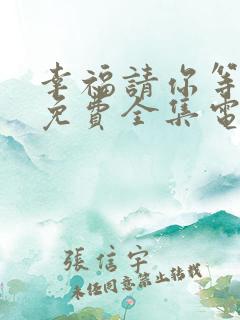 幸福請你等
免費全集電
張信宇
未任同意禁止轉載